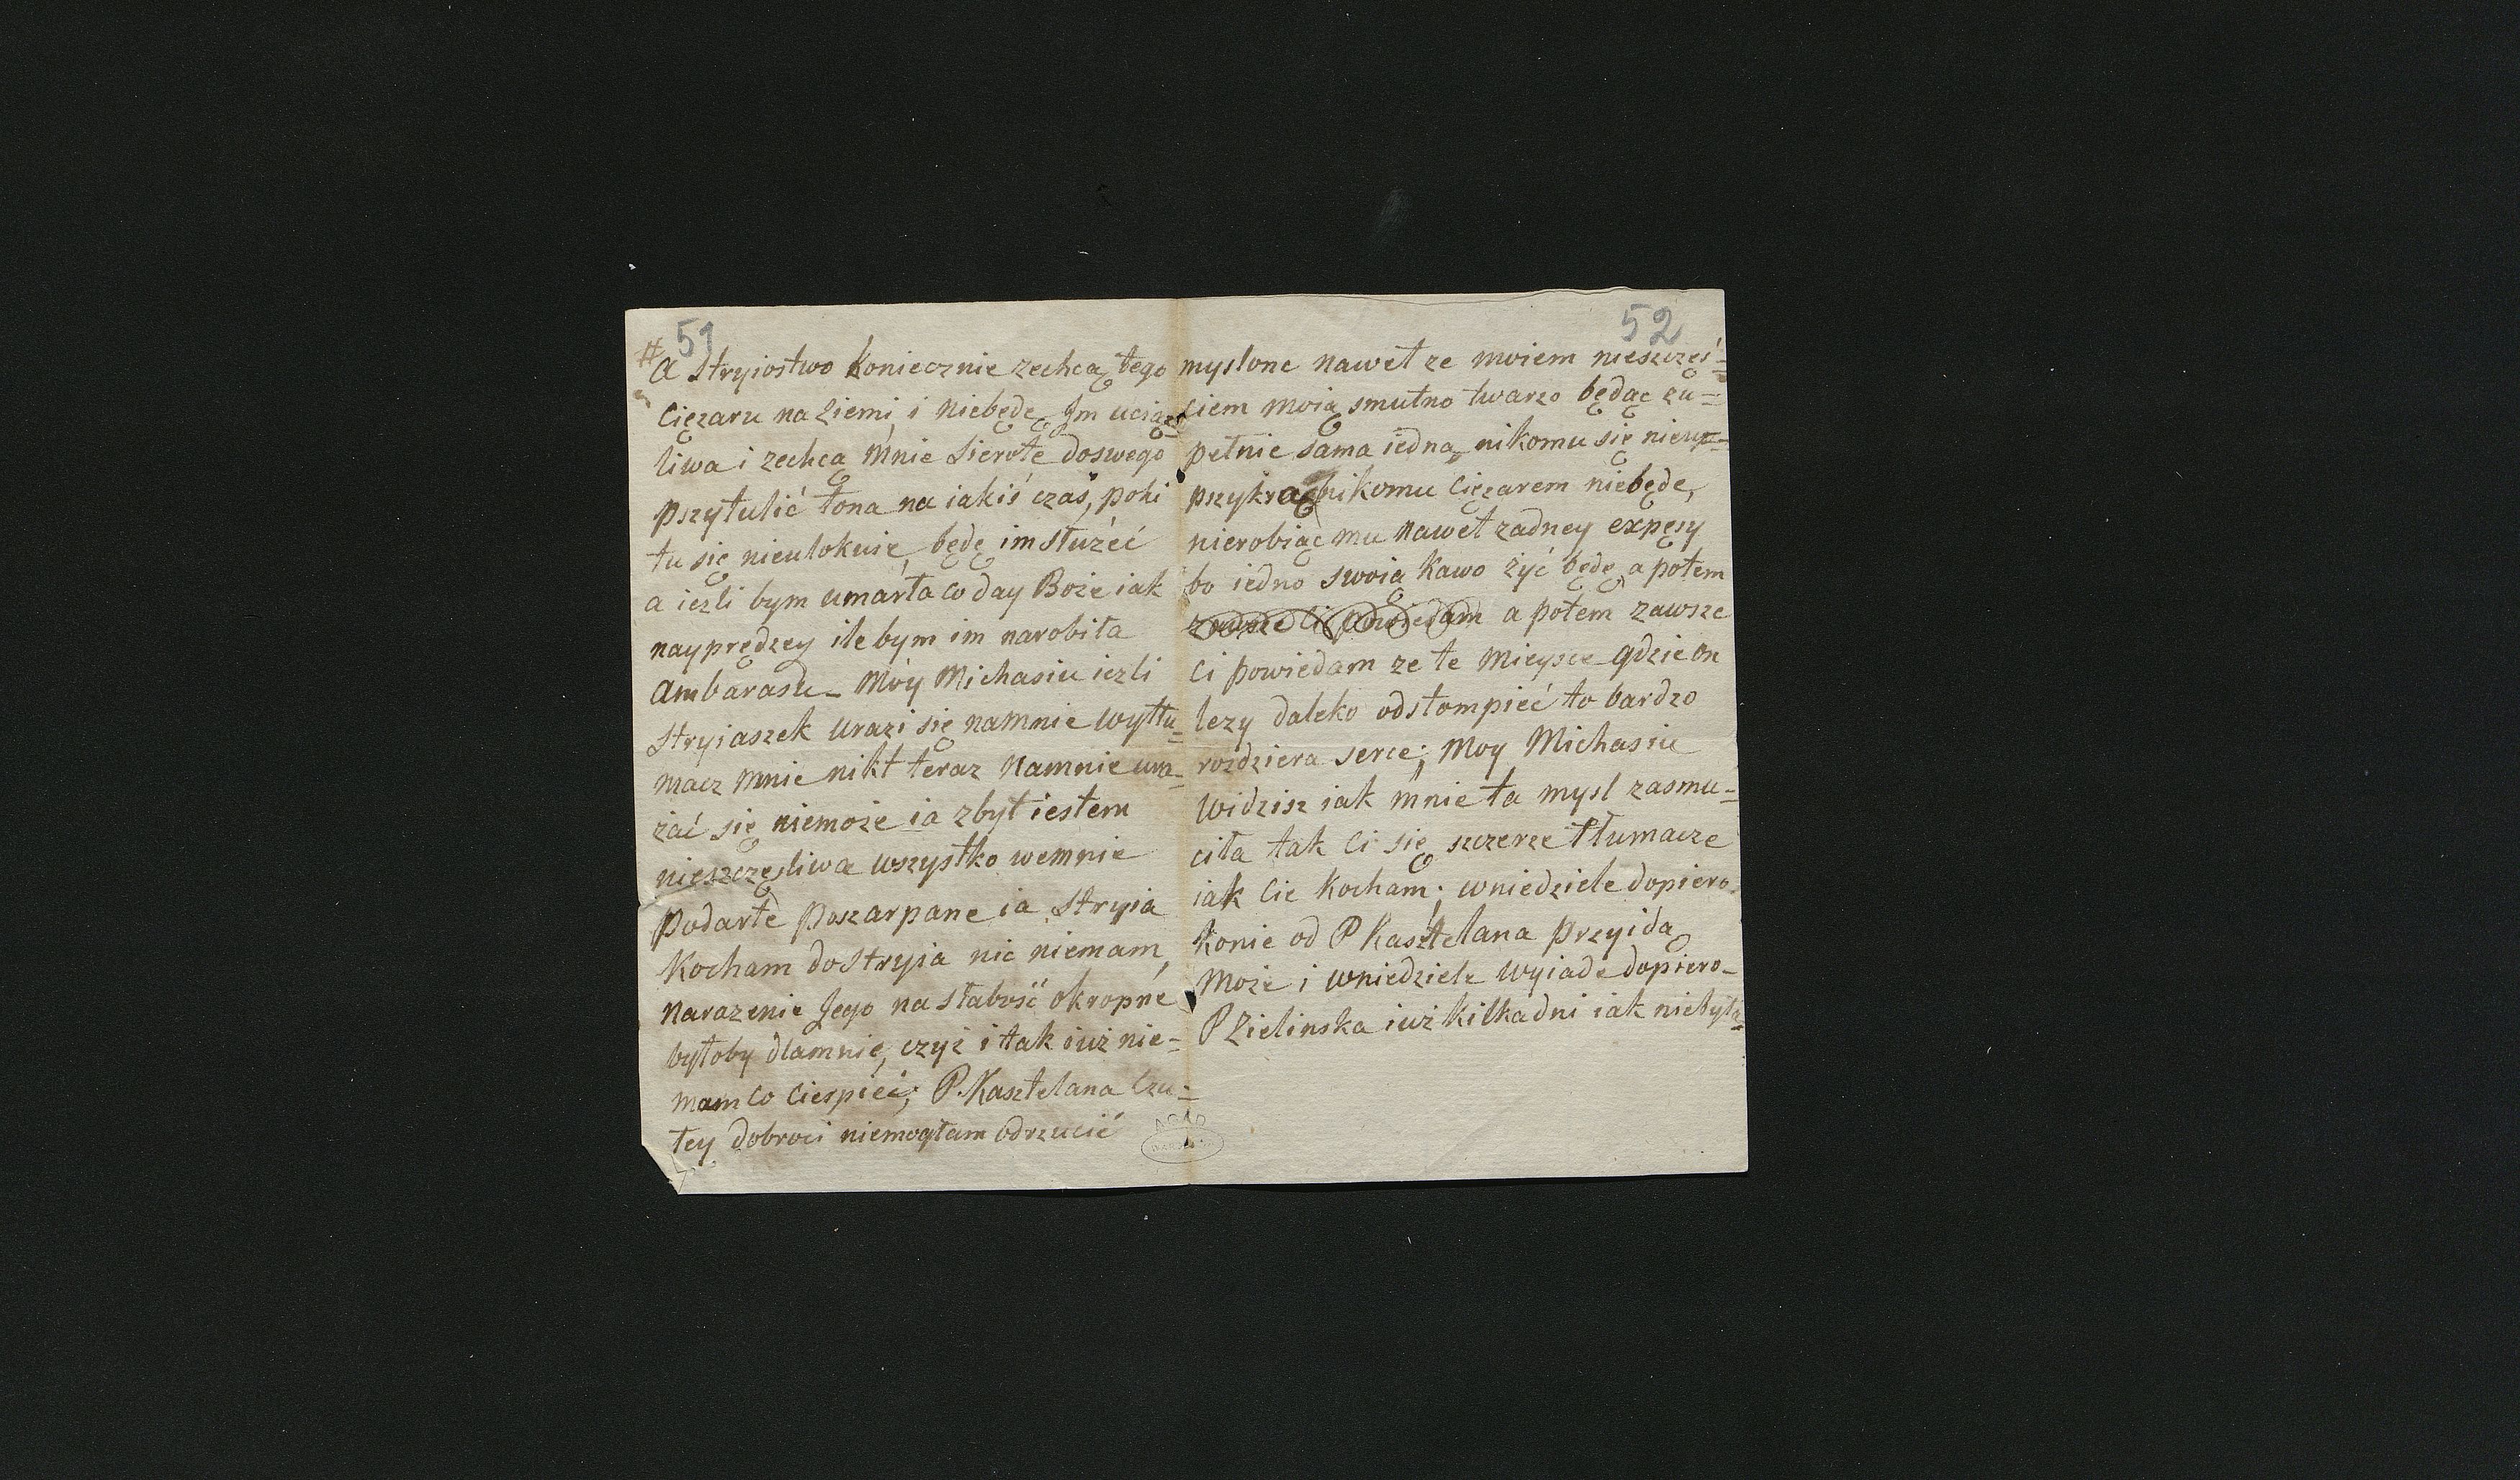 51
# a Stryiostwo koniecznie zechcą tego
Ciężaru na ziemi, i niebędę Jm uciąż-
liwa i zechcą mnie Sierote doswego
pszytulić łona na iakiś czas, poki
tu się nieulokuię, będę im słúzéć
a iezli bym umarła co day Boże iak
nayprędzey ile bym im narobiła
Ambarasu_ Móy Michasiu iezli
Stryiaszek urazi się namnie wytłu=
macz mnie nikt teraz namnie ura=
zać się niemoże ia zbyt iestem
nieszczęsliwa wszystko wemnie
podarte poszarpane ia Stryia
Kocham do Stryia nic niemam,
Narazenie Jego na słabość okropne
byłoby dlamnie, czyż i tak iuż nie=
mam co Cierpieć; P. Kasztelana Czu=
łey dobroci niemogłam odrzucić
AGAD
52
myslonc nawet ze moiem nieszczęś=
ciem moią smutno twarzo będąc zu=
pełnie sama iedna, nikomu się nieup=
przykrzą nikomu Ciężarem niebęde,
nierobiąc mu nawet zadney expęsy
bo iedno swoią Kawo żyć będę, a potem
zawsze Ci powiedam a potem zawsze
Ci powiedam ze te Mieysce gdzie on
lezy daleko odstompieć to bardzo
rozdziera serce; Moy Michasiu
widzisz iak mnie ta mysl zasmu=
ciła tak Ci się szczerze tłumacze
iak Cie Kocham; wniedziele dopiero
Konie od P Kasztelana przyidą
Może i wniedziele wyiade dopiero_
P Zielinska iuż kilkadni iak niebyła_